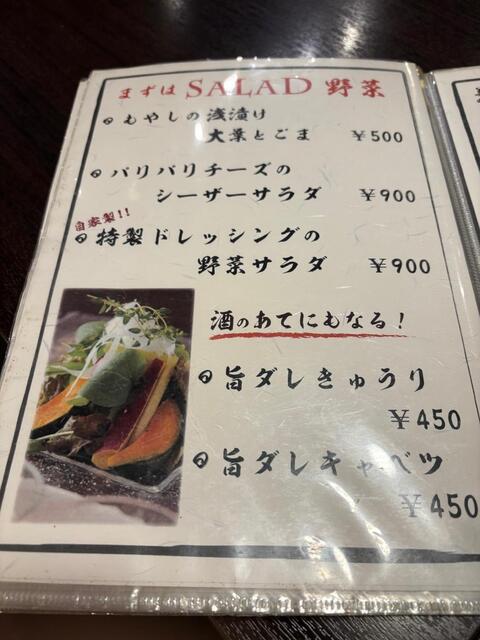 まずは SALAD 野菜
もやしの浅漬け
大葉とごま ￥500
パリパリチーズの
シーザーサラダ ￥900
自家製!!
特製ドレッシングの
野菜サラダ ￥900
酒のあてにもなる！
旨ダレきゅうり
￥450
旨ダレキャベツ
￥450